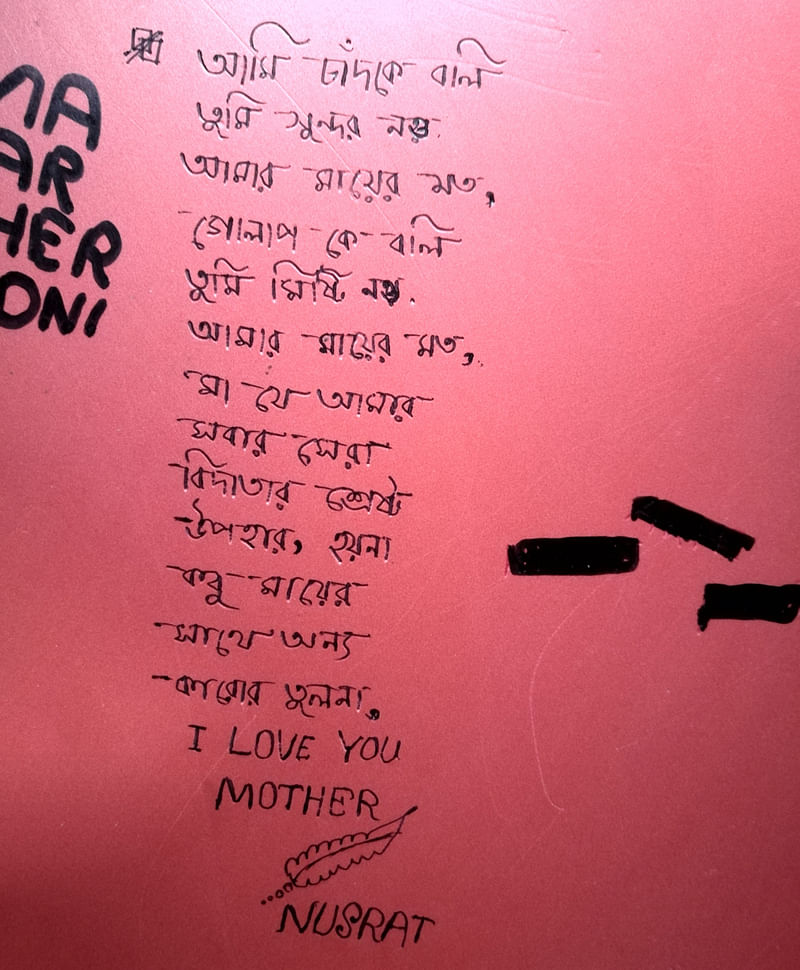 আমি চাঁদকে বলি
তুমি সুন্দর নও
আমার মায়ের মত,
গোলাপ কে বলি
তুমি মিষ্টি নও.
আমার মায়ের মত,
মা যে আমার
সবার সেরা
বিদাতার শ্রেষ্ট
উপহার, হয়না
কবু মায়ের
সাথে অন্য
কারোর তুলনা,
I LOVE YOU
MOTHER
NUSRAT
AR
HER
ONI